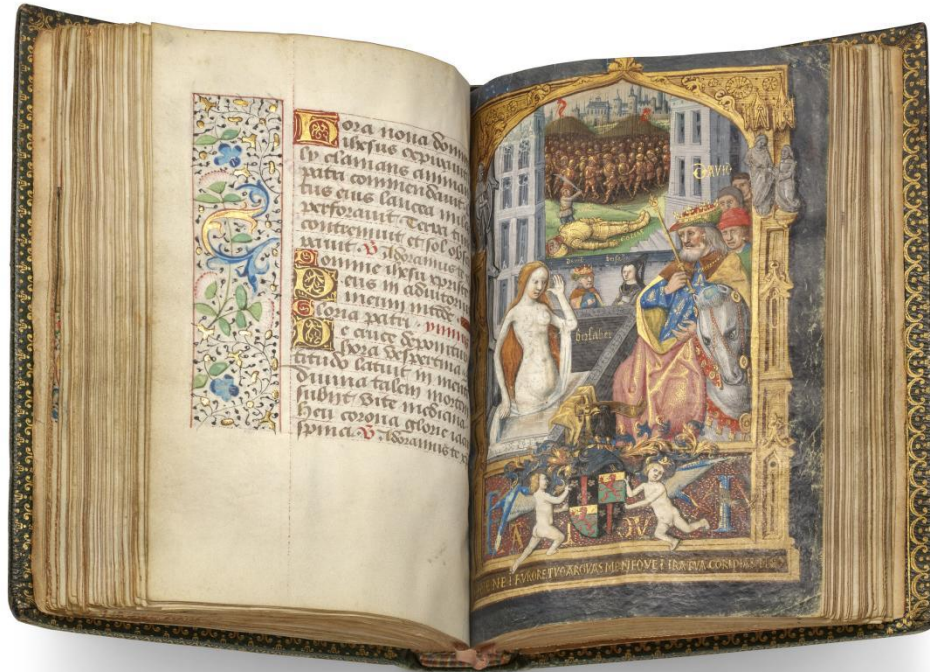 Hora nona domin
ihesus expiravit
ly clamans animam
patri commendavit
tus eius lancea mil
perforavit Terra tu
contremuit et sol obs
ravit ℣ Adoramus te
Domine ihesu xpriste
Deus in adiutoriu
meum intede
Gloria patri
De cruce deponitur
hora vespertina
titudo latuit in ment
divina talem mortem
subiit vite medicina
heu corona glorie iac
spinei ℣ Adoramus te x
DAVI
bersabee
NE I FVRORE TVO ARGVAS ME NEQVE I IRA TVA CORI